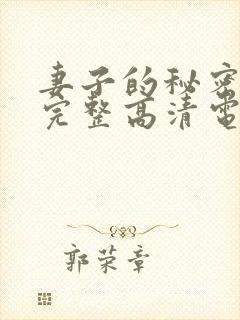 妻子的秘密
完整高清電
郭荣章